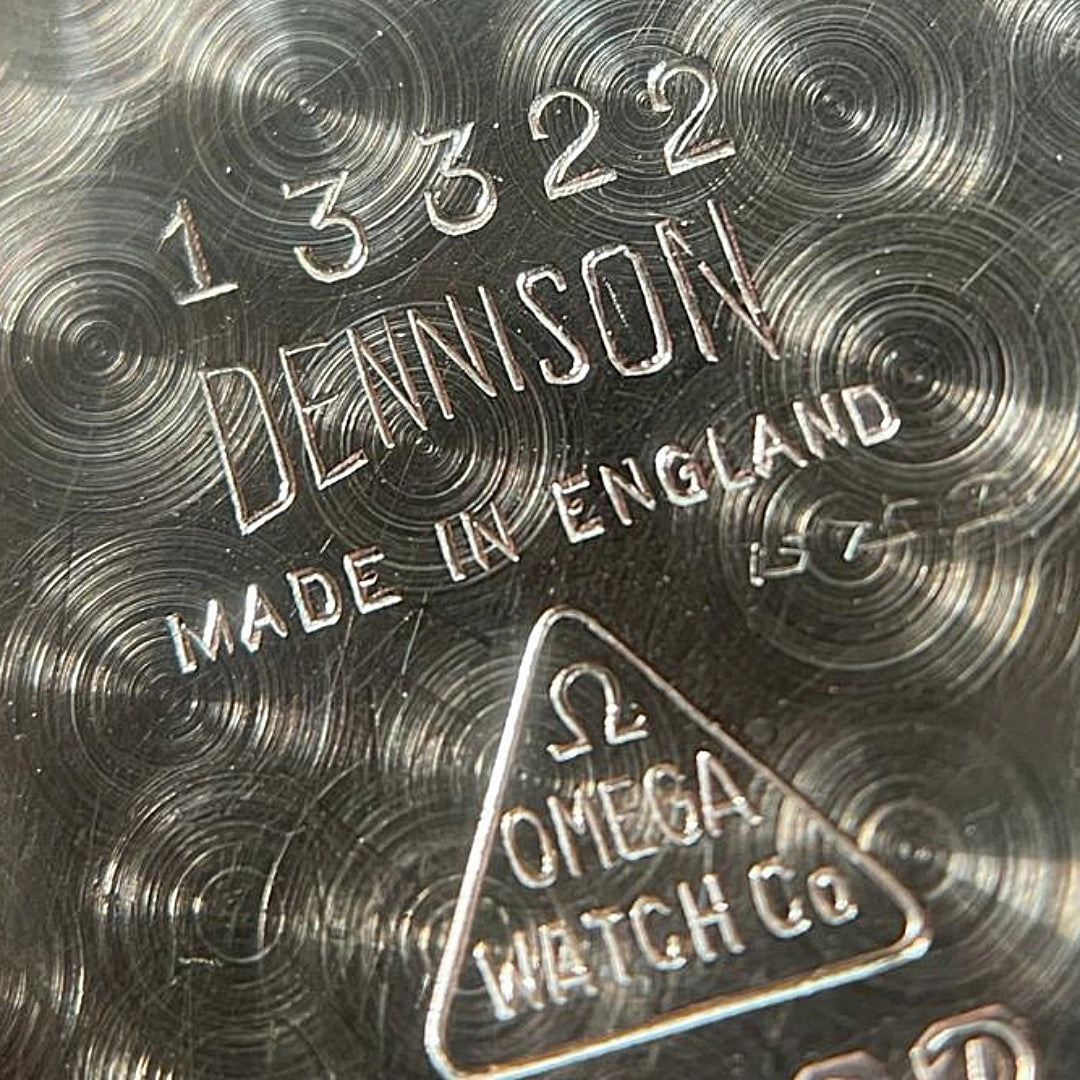 13322
DENNISON
MADE IN ENGLAND
Ω
OMEGA
WATCH Co